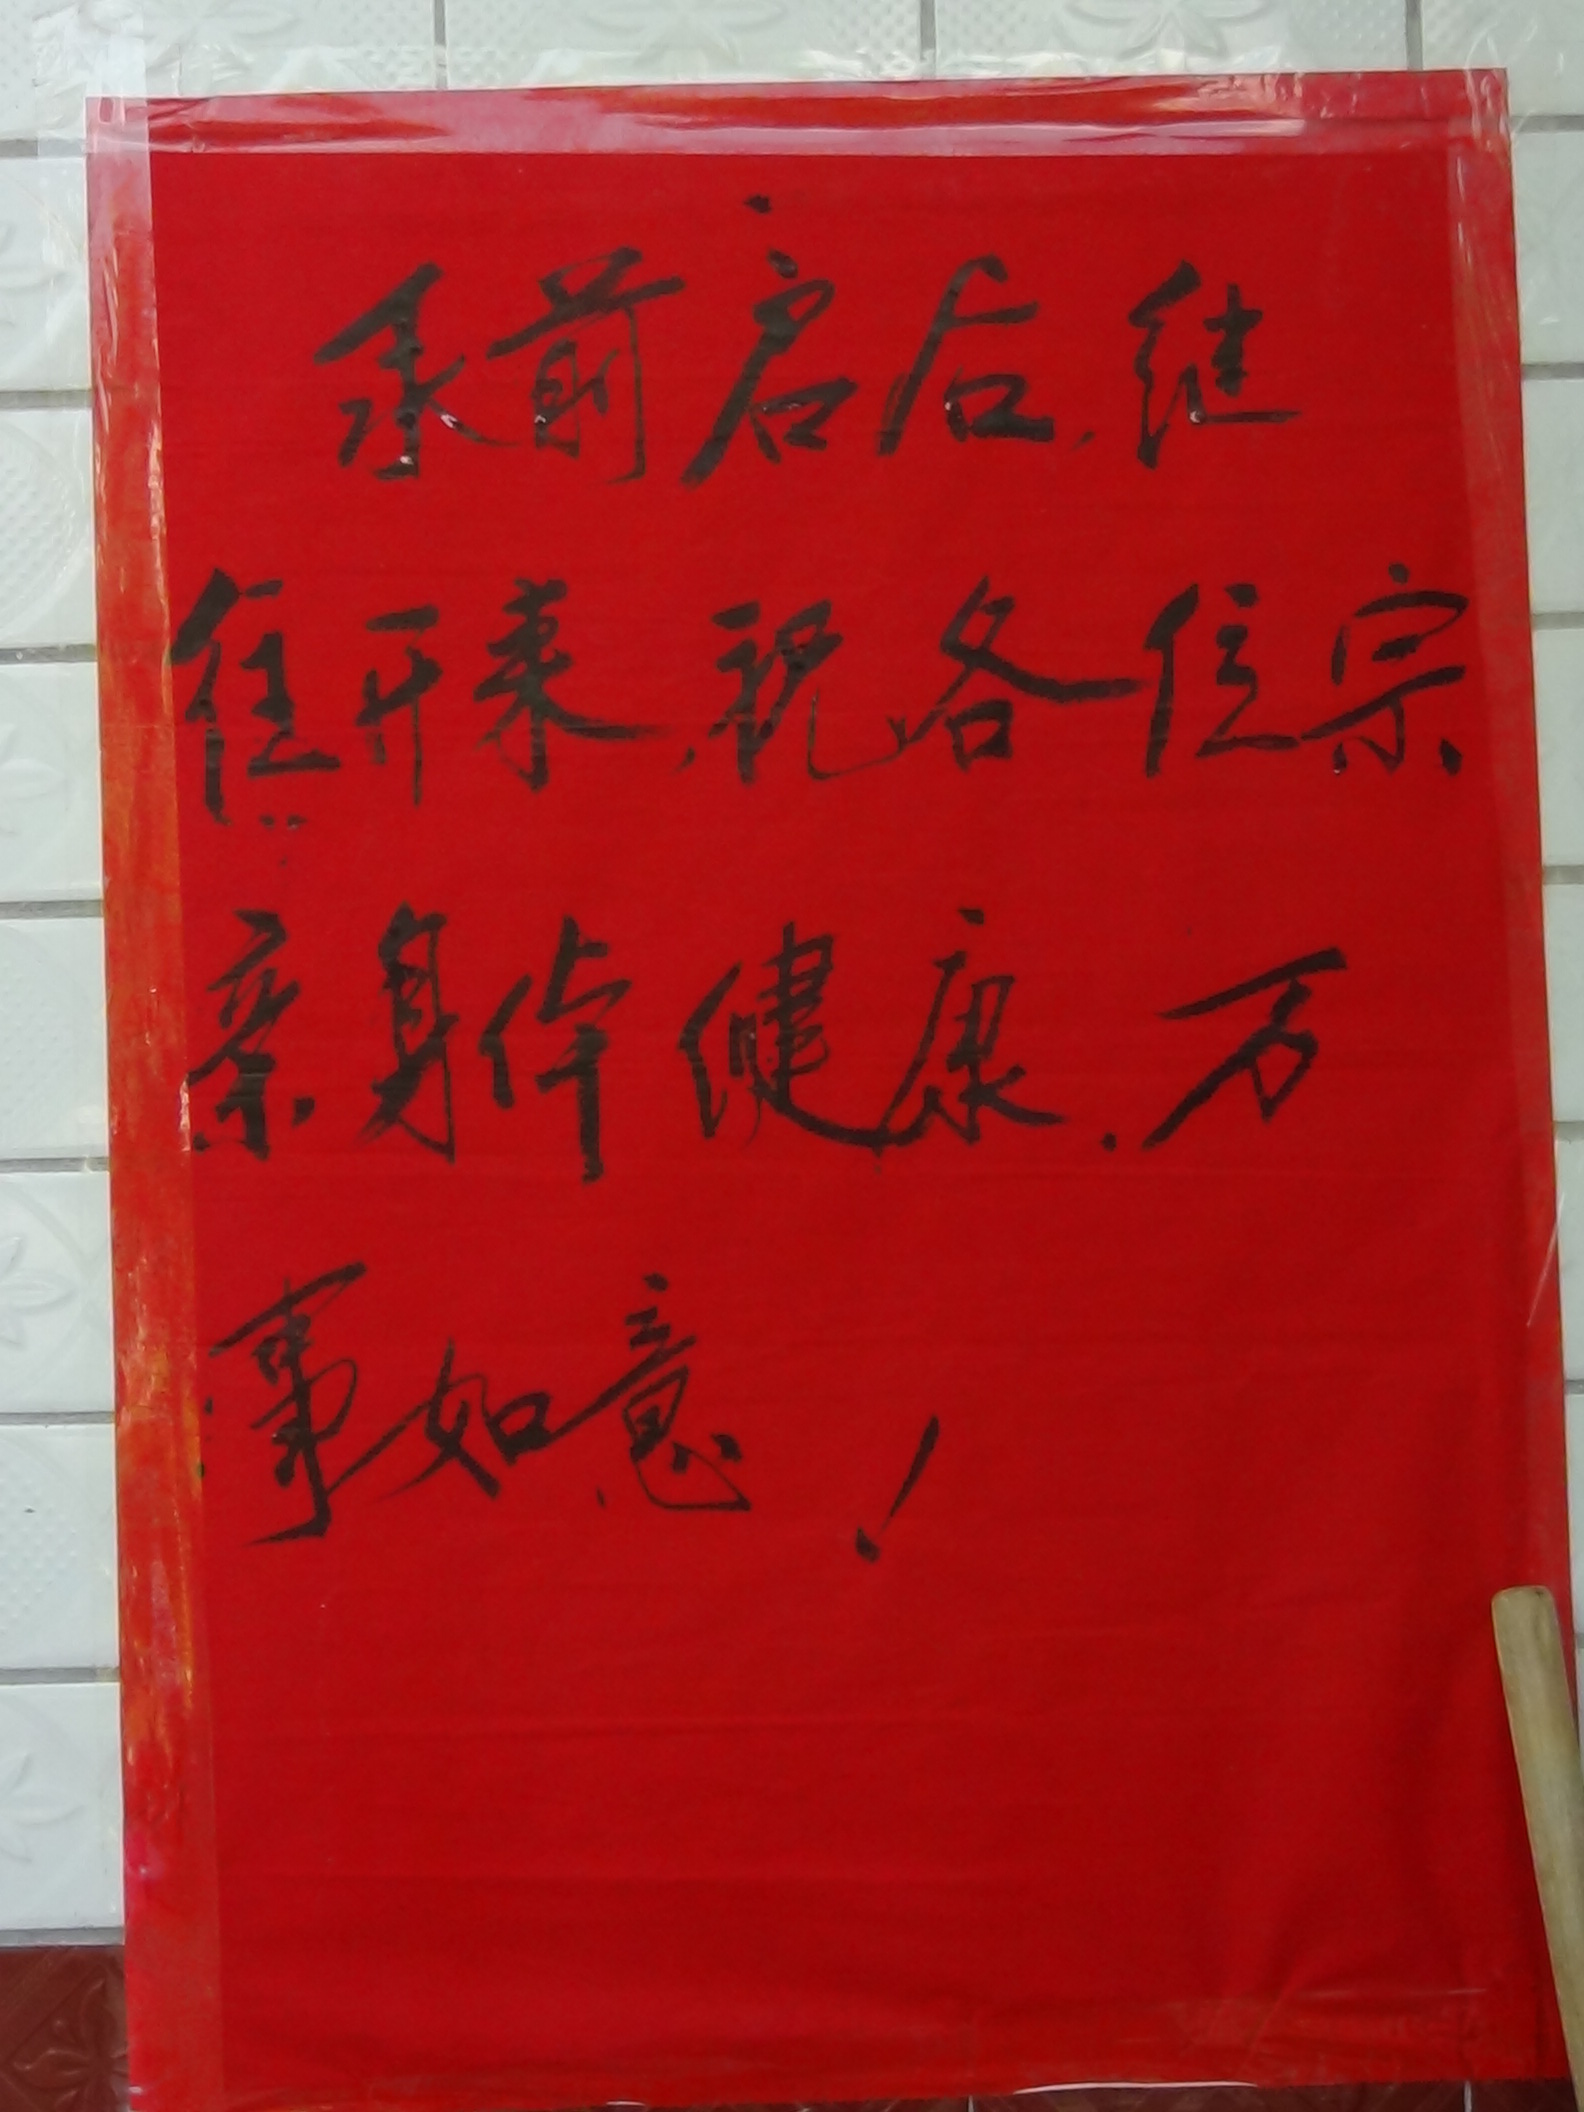 承前启后,继
往开来,祝各位宗
亲身体健康.万
事如意!